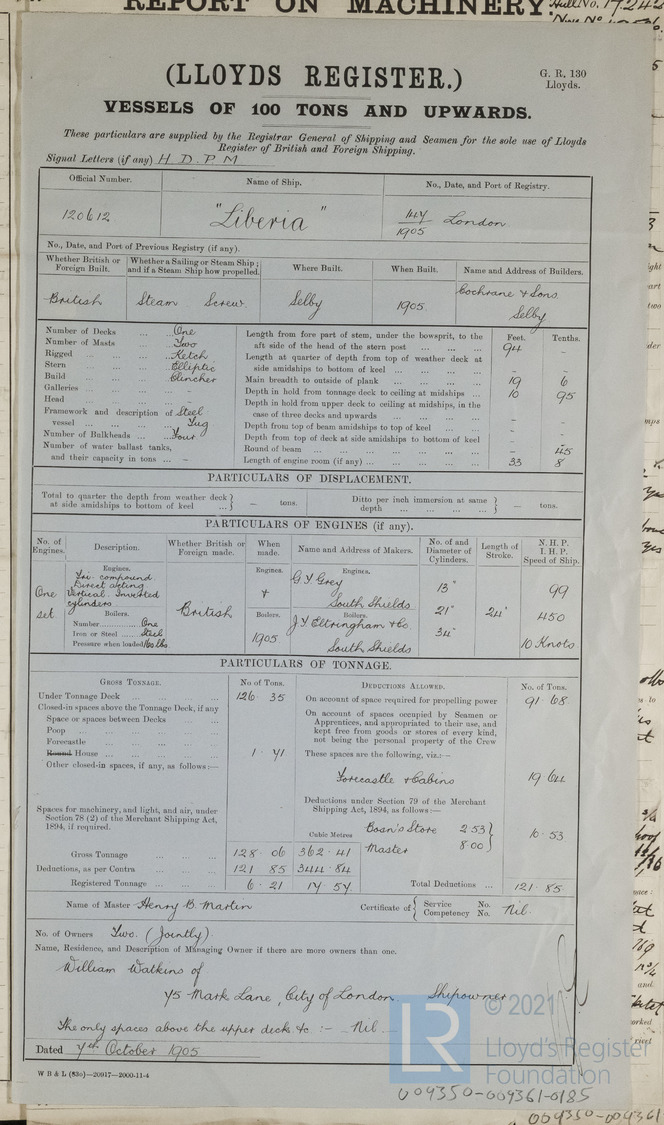 REPORT ON MACHINERY.
Hull No. 17242
(LLOYDS REGISTER.)
G. R. 130
Lloyds.
VESSELS OF 100 TONS AND UPWARDS.
These particulars are supplied by the Registrar General of Shipping and Seamen for the sole use of Lloyds
Register of British and Foreign Shipping.
Signal Letters (if any) H. D. P. M
Official Number. Name of Ship. No., Date, and Port of Registry.
120612 "Liberia" 447/1905 London
No., Date, and Port of Previous Registry (if any).
Whether British or Foreign Built. Whether a Sailing or Steam Ship; and if a Steam Ship how propelled. Where Built. When Built. Name and Address of Builders.
British Steam Screw Selby 1905 Cochrane & Sons Selby
Number of Decks One
Number of Masts Two
Rigged Ketch
Stern Elliptic
Build Clincher
Galleries -
Head -
Framework and description of vessel Steel Tug
Number of Bulkheads Four
Number of water ballast tanks, and their capacity in tons -
Feet. Tenths.
Length from fore part of stem, under the bowsprit, to the aft side of the head of the stern post 94 -
Length at quarter of depth from top of weather deck at side amidships to bottom of keel - -
Main breadth to outside of plank 19 6
Depth in hold from tonnage deck to ceiling at midships 10 95
Depth in hold from upper deck to ceiling at midships, in the case of three decks and upwards - -
Depth from top of beam amidships to top of keel - -
Depth from top of deck at side amidships to bottom of keel - -
Round of beam - 45
Length of engine room (if any) 33 8
PARTICULARS OF DISPLACEMENT.
Total to quarter the depth from weather deck at side amidships to bottom of keel - tons. Ditto per inch immersion at same depth - tons.
PARTICULARS OF ENGINES (if any).
No. of Engines. Description. Whether British or Foreign made. When made. Name and Address of Makers. No. of and Diameter of Cylinders. Length of Stroke. N. H. P. I. H. P. Speed of Ship.
Engines. Engines. Engines.
One set
Tri. compound
Direct acting
Vertical Inverted
cylinders
British
G. T. Grey
South Shields
13"
21"
34"
24"
99
450
10 Knots
Boilers. Boilers. Boilers.
Number One
Iron or Steel Steel
Pressure when loaded 160 lbs.
1905
J. T. Eltringham & Co.
South Shields
PARTICULARS OF TONNAGE.
GROSS TONNAGE. No of Tons. DEDUCTIONS ALLOWED. No. of Tons.
Under Tonnage Deck 126 35
Closed-in spaces above the Tonnage Deck, if any
Space or spaces between Decks
Poop
Forecastle
Round House 1 . 71
Other closed-in spaces, if any, as follows:—
Spaces for machinery, and light, and air, under
Section 78 (2) of the Merchant Shipping Act,
1894, if required.
On account of space required for propelling power 91 . 68
On account of spaces occupied by Seamen or
Apprentices, and appropriated to their use, and
kept free from goods or stores of every kind,
not being the personal property of the Crew
These spaces are the following, viz.:—
Forecastle & Cabins 19 64
Deductions under Section 79 of the Merchant
Shipping Act, 1894, as follows:—
Cubic Metres
Boan's Store 2.53
Master 8.00
10 . 53
Gross Tonnage 128 . 06 362 . 41
Deductions, as per Contra 121 85 344 . 84
Registered Tonnage 6 . 21 17 . 57 Total Deductions 121 . 85
Name of Master Henry B. Martin Certificate of Service No. Competency No. Nil.
No. of Owners Two. (Jointly).
Name, Residence, and Description of Managing Owner if there are more owners than one.
William Watkins of
75 Mark Lane, City of London Shipowner
The only spaces above the upper deck &c :- Nil.
Dated 7th October 1905
W B & L (83o)—20917—2000-11-4
LR
© 2021
Lloyd's Register
Foundation
009350-009361-0185
009350-009361